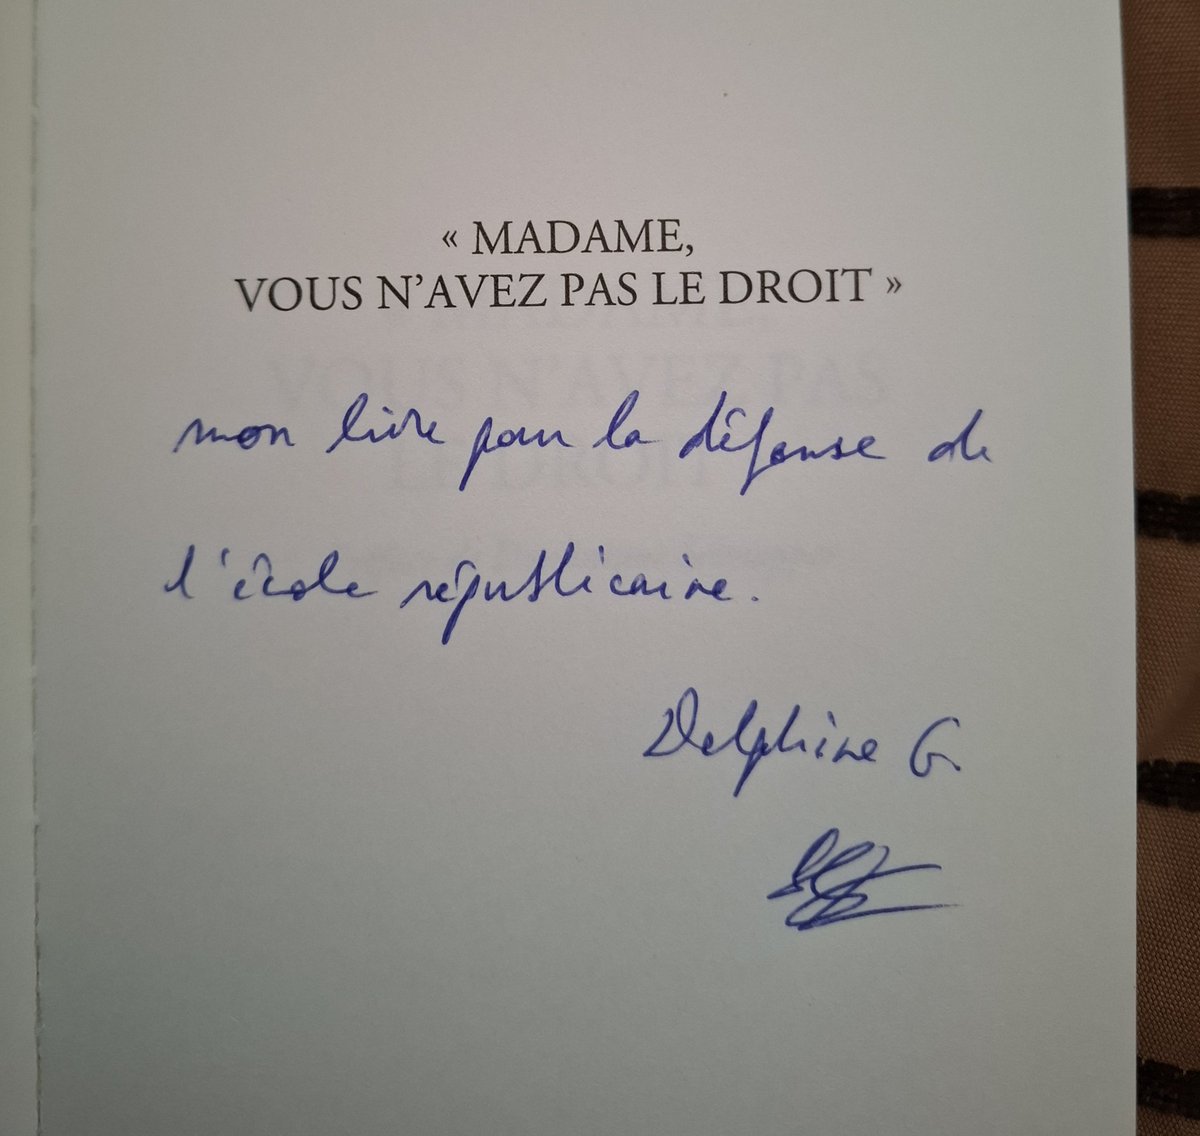 « MADAME,
VOUS N'AVEZ PAS LE DROIT »
mon livre pour la défense de
l'école républicaine.
Delphine G.